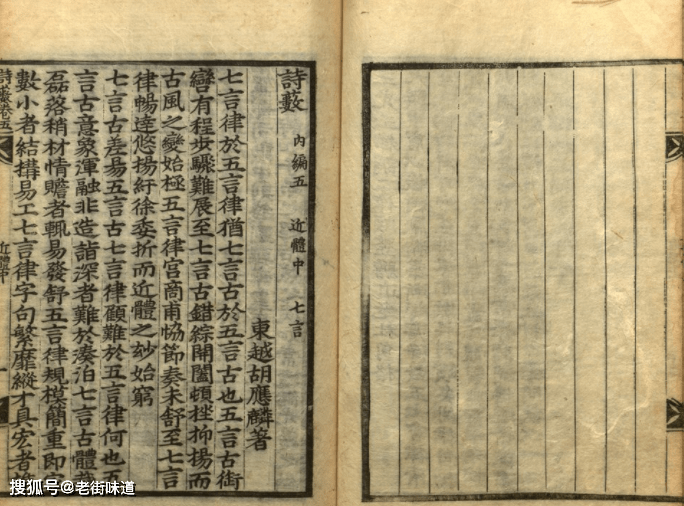 詩藪 内編五 近體中 七言
東越胡應麟著
七言律於五言律猶七言古於五言古也五言古銜
轡有程步驟難展至七言古錯綜開闔頓挫抑揚而
古風之變始極五言律宮商甫恊節奏未舒至七言
律暢達悠揚紆徐委折而近體之玅始窮
七言古差易五言古七言律顧難於五言律何也五
言古意象渾融非造詣深者難於湊泊七言古體
磊落稍材情贍者輒易發舒五言律規模簡重即
數小者結搆易工七言律字句繁靡縱才具宏者
詩藪卷五 近體中
搜狐号@老街味道